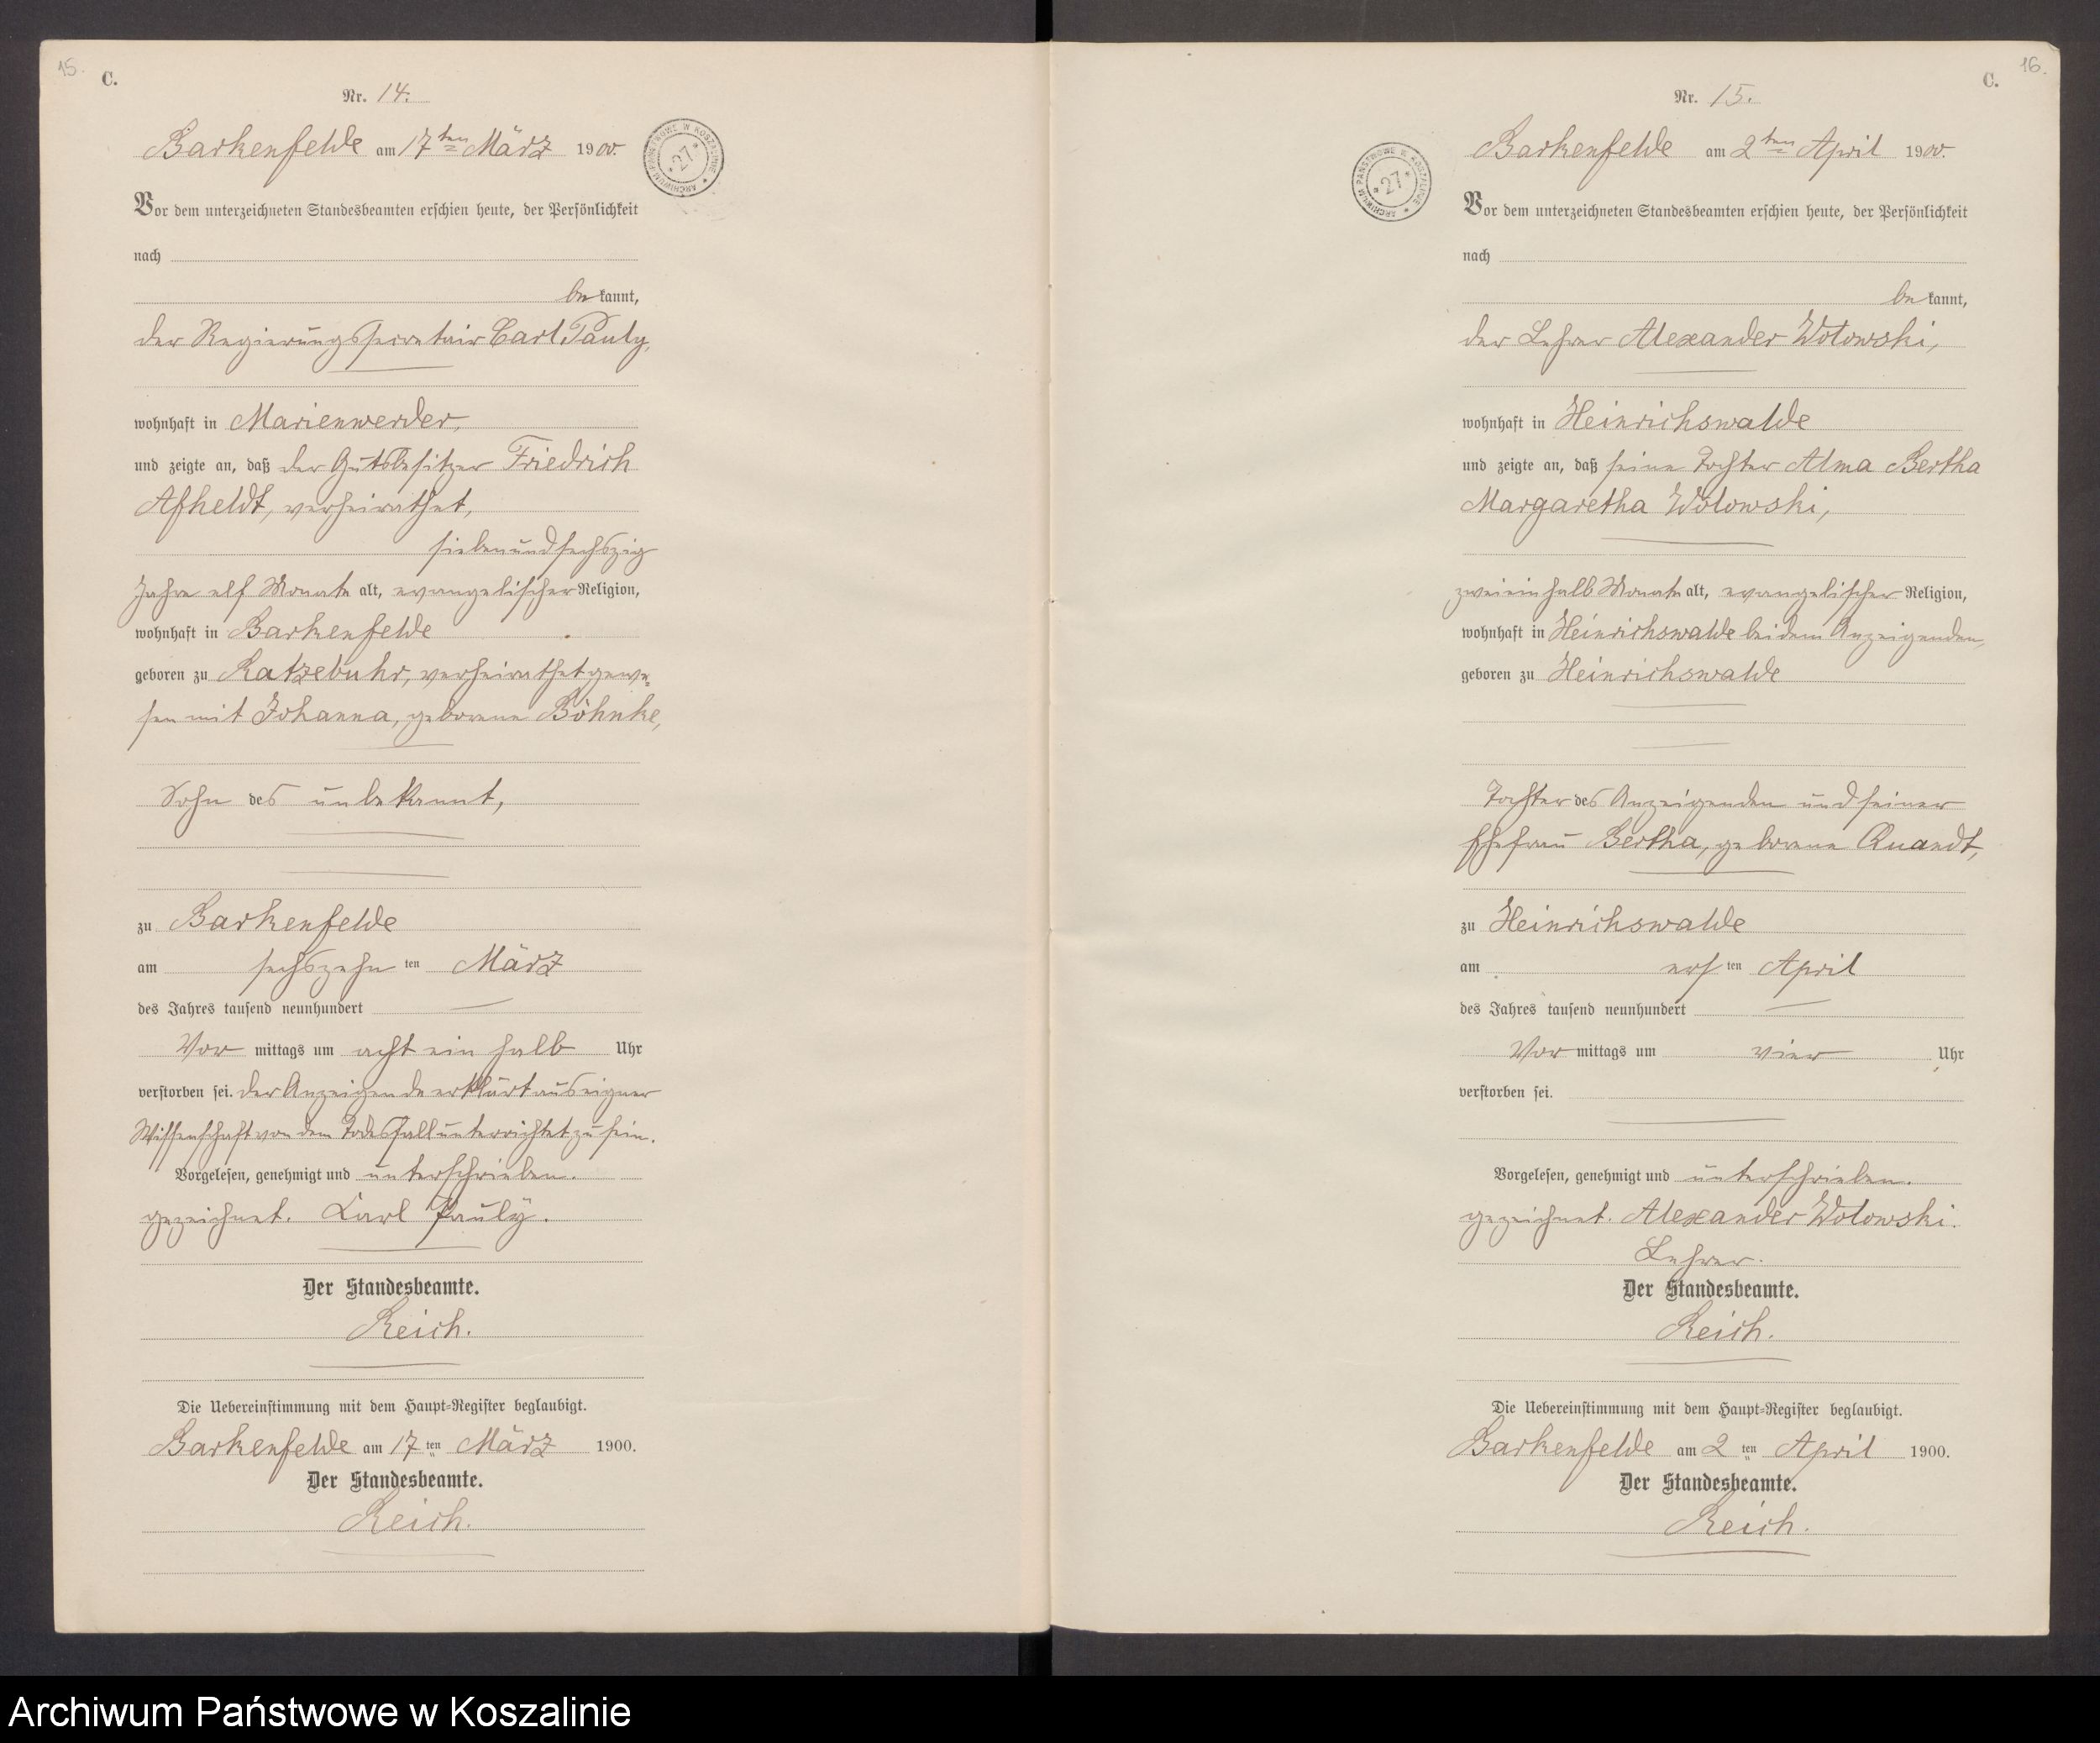 15.
C.
Nr. 14.
Barkenfelde am 17ten März 1900.
ARCHIWUM PAŃSTWOWE W KOSZALINIE
* 27 *
Vor dem unterzeichneten Standesbeamten erschien heute, der Persönlichkeit
nach
be kannt,
der Regierungssecretair Carl Pauly,
wohnhaft in Marienwerder,
und zeigte an, daß der Gutsbesitzer Friedrich
Afheldt, verheirathet,
siebenundsechszig
Jahre elf Monate alt, evangelischer Religion,
wohnhaft in Barkenfelde
geboren zu Ratzebuhr, verheirathet gewe-
sen mit Johanna, geborene Böhnke,
Sohn des unbekannt,
zu Barkenfelde
am sechszehn ten März
des Jahres tausend neunhundert
Vor mittags um acht ein halb Uhr
verstorben sei. Der Anzeigende erklärt aus eigner
Wissenschaft von dem Todesfall unterrichtet zu sein.
Vorgelesen, genehmigt und unterschrieben.
gezeichnet. Karl Pauly.
Der Standesbeamte.
Reich.
Die Uebereinstimmung mit dem Haupt-Register beglaubigt.
Barkenfelde am 17 ten März 1900.
Der Standesbeamte.
Reich.
16.
C.
Nr. 15.
Barkenfelde am 2ten April 1900.
ARCHIWUM PAŃSTWOWE W KOSZALINIE
* 27 *
Vor dem unterzeichneten Standesbeamten erschien heute, der Persönlichkeit
nach
be kannt,
der Lehrer Alexander Wolowski,
wohnhaft in Heinrichswalde
und zeigte an, daß seine Tochter Alma Bertha
Margaretha Wolowski,
zweieinhalb Monate alt, evangelischer Religion,
wohnhaft in Heinrichswalde bei dem Anzeigenden,
geboren zu Heinrichswalde
Tochter des Anzeigenden und seiner
Ehefrau Bertha, geborene Quandt,
zu Heinrichswalde
am ers ten April
des Jahres tausend neunhundert
Vor mittags um vier Uhr
verstorben sei.
Vorgelesen, genehmigt und unterschrieben.
gezeichnet. Alexander Wolowski.
Lehrer.
Der Standesbeamte.
Reich.
Die Uebereinstimmung mit dem Haupt-Register beglaubigt.
Barkenfelde am 2 ten April 1900.
Der Standesbeamte.
Reich.
Archiwum Państwowe w Koszalinie